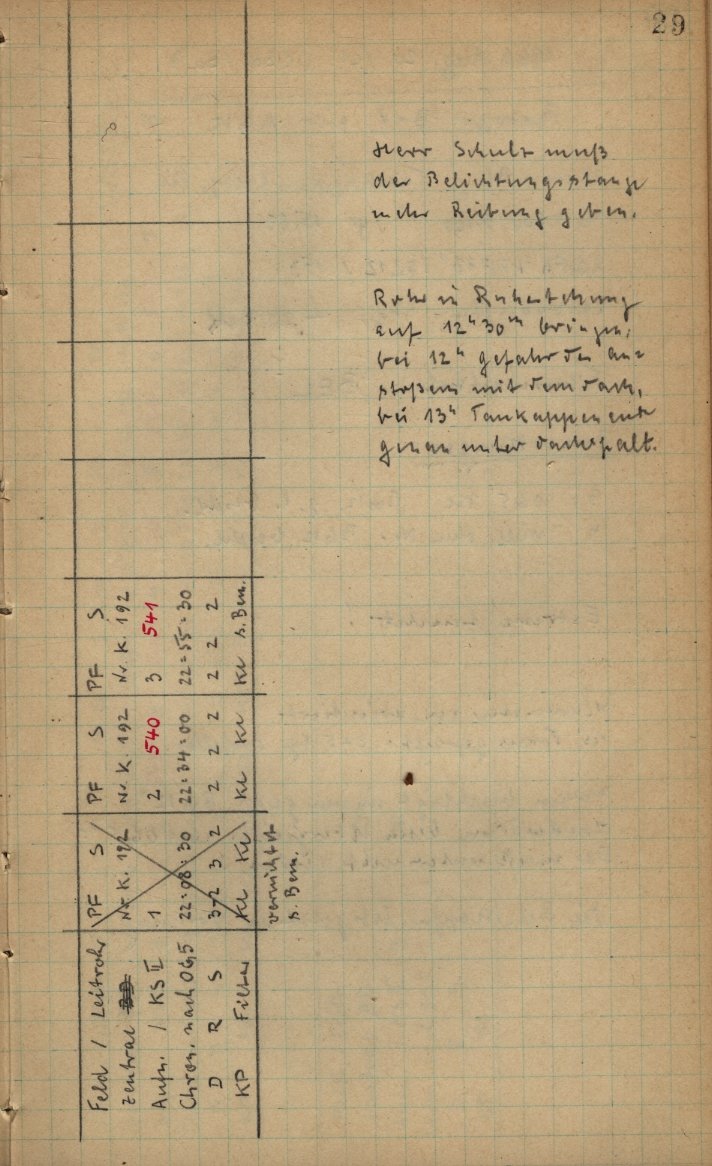 29
Herr Schulz muß
der Belichtungsstange
mehr Reibung geben.
Rohr in Ruhestellung
auf 12ʰ30ᵐ bringen,
bei 12ʰ gefahr des an=
stoßens mit dem dach,
bei 13ʰ Taukappenende
genau unter dachspalt.
Feld / Leitrohr
Zentral
Aufn. / KS II
Chron. nach 0G,5
D R S
KP Filter
PF S
Nr K. 192
1
22:08:30
3-2 3 2
Kl Kl
vernichtet
s. Bem.
PF S
Nr. K. 192
2 540
22:34:00
2 2 2
Kl Kl
PF S
Nr. K. 192
3 541
22:55:30
2 2 2
Kl s. Bem.